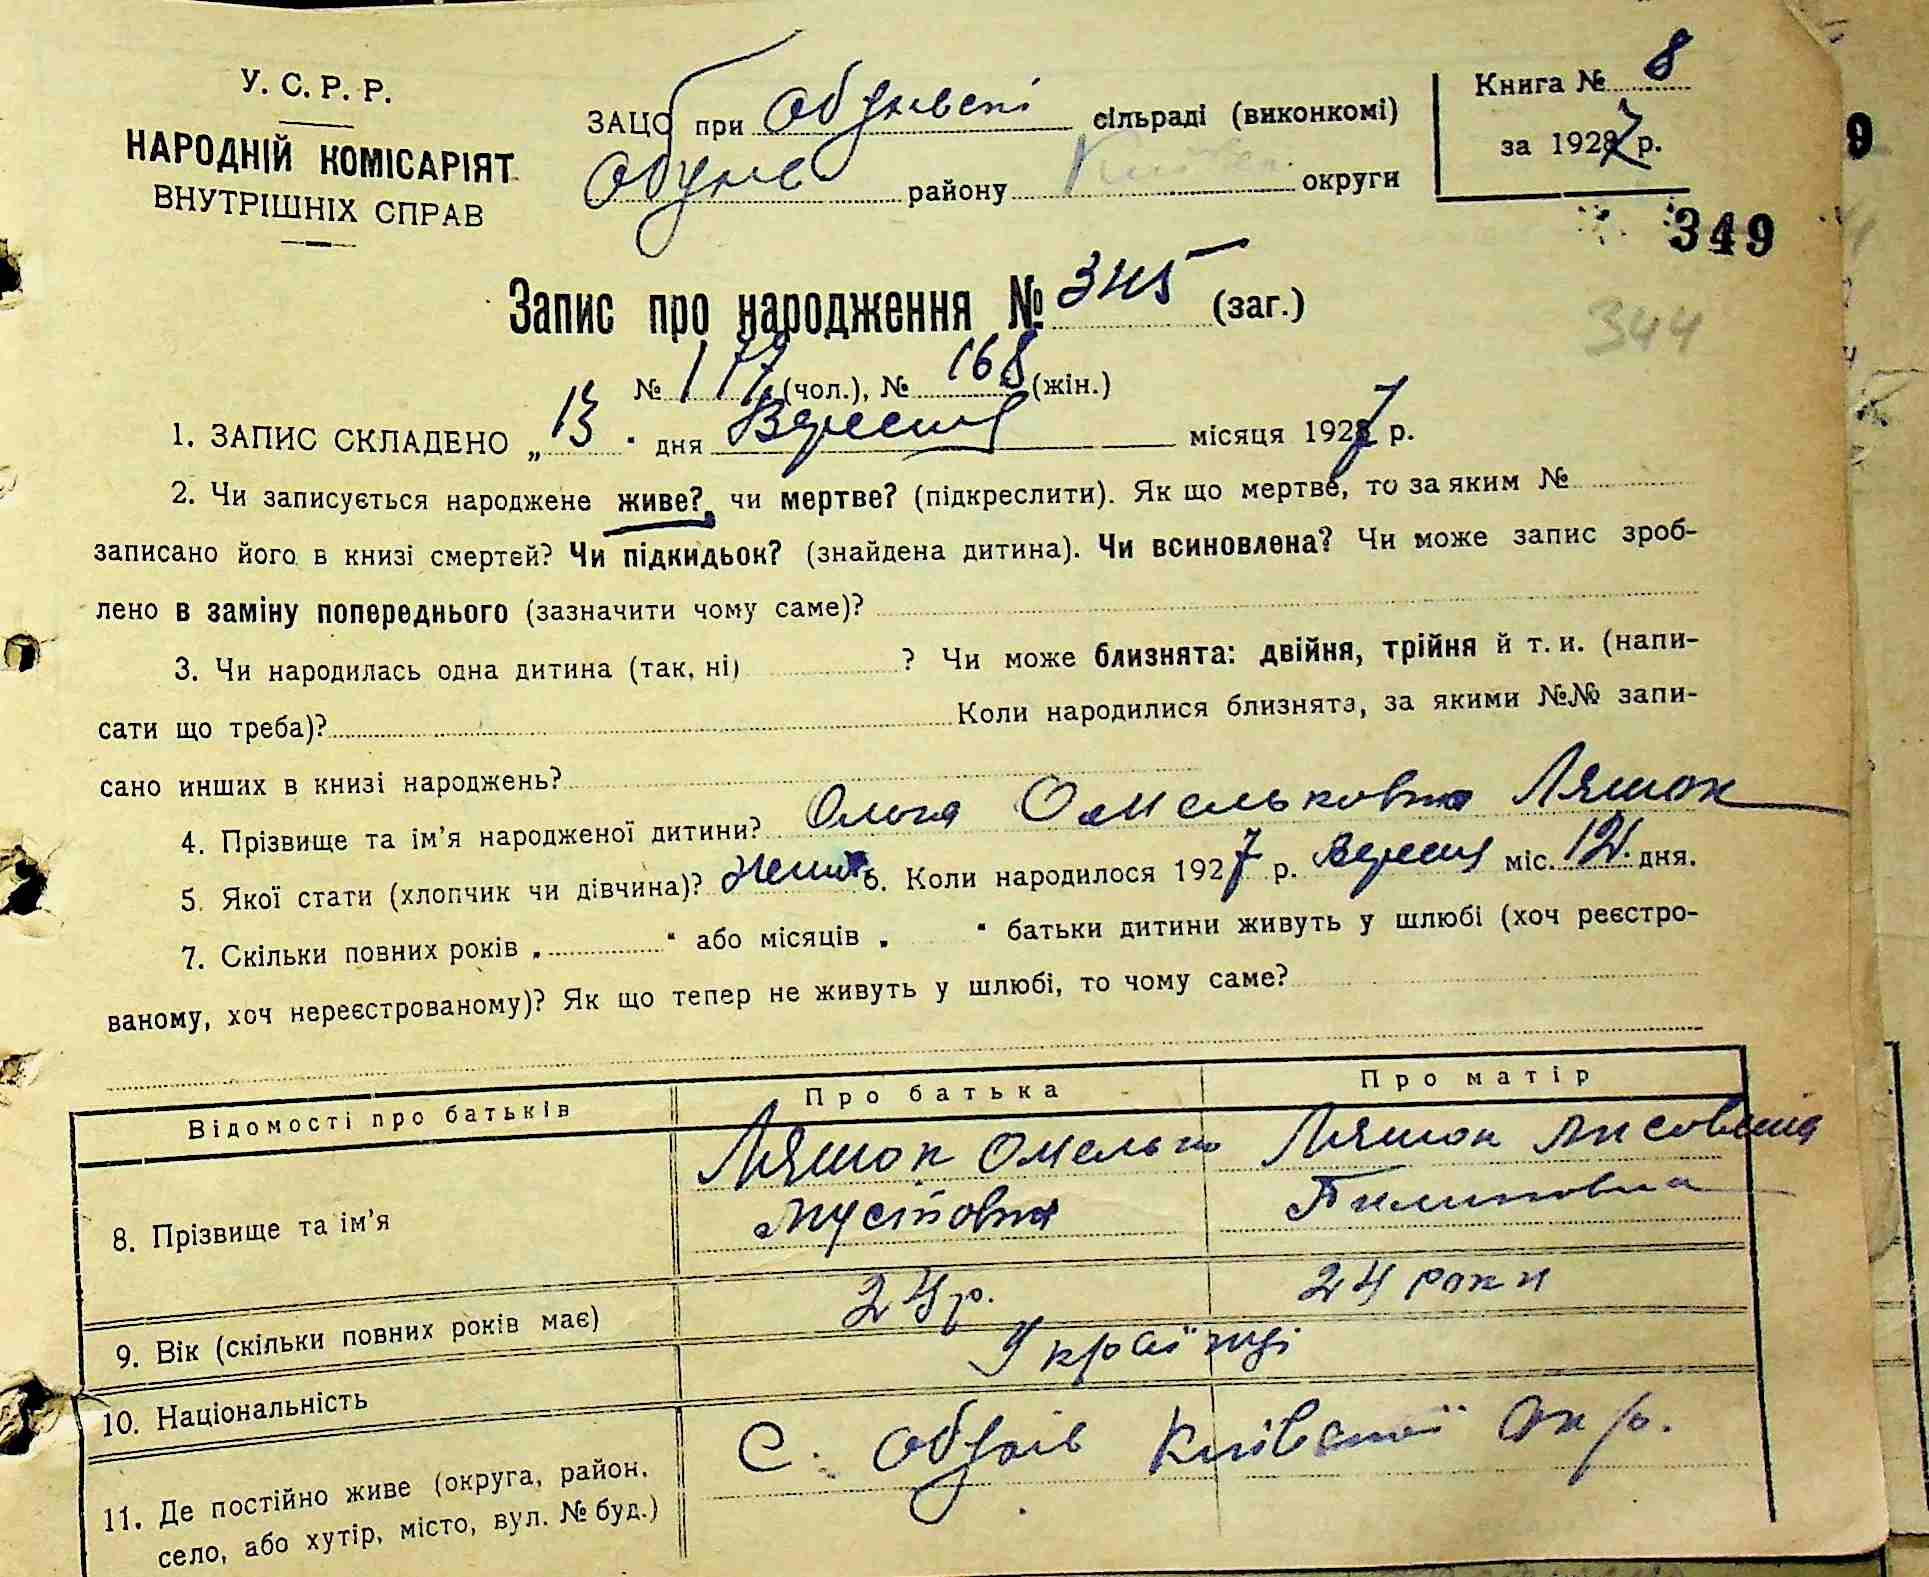 У. С. Р. Р.
НАРОДНІЙ КОМІСАРІЯТ
ВНУТРІШНІХ СПРАВ
ЗАЦС при сільраді (виконкомі)
району округи
Книга № 8
за 1927 р.
9
349
Запис про народження № 345 (заг.)
344
№ 177 (чол.), № 168 (жін.)
1. ЗАПИС СКЛАДЕНО „ 13 " дня Вересня місяця 1927 р.
2. Чи записується народжене живе? чи мертве? (підкреслити). Як що мертве, то за яким №
записано його в книзі смертей? Чи підкидьок? (знайдена дитина). Чи всиновлена? Чи може запис зроб-
лено в заміну попереднього (зазначити чому саме)?
3. Чи народилась одна дитина (так, ні) ? Чи може близнята: двійня, трійня й т. и. (напи-
сати що треба)? Коли народилися близнята, за якими №№ запи-
сано инших в книзі народжень?
4. Прізвище та ім'я народженої дитини? Ольга Омельковна Ляшок
5. Якої стати (хлопчик чи дівчина)? 6. Коли народилося 1927 р. Вересня міс. 12 дня.
7. Скільки повних років „ " або місяців „ " батьки дитини живуть у шлюбі (хоч реєстро-
ваному, хоч нереєстрованому)? Як що тепер не живуть у шлюбі, то чому саме?
Відомості про батьків Про батька Про матір
8. Прізвище та ім'я Ляшок Омелько Ляшок
9. Вік (скільки повних років має) 24 р. 24 роки
10. Національність Українці
11. Де постійно живе (округа, район, село, або хутір, місто, вул. № буд.) С. Обухів Київської окр.